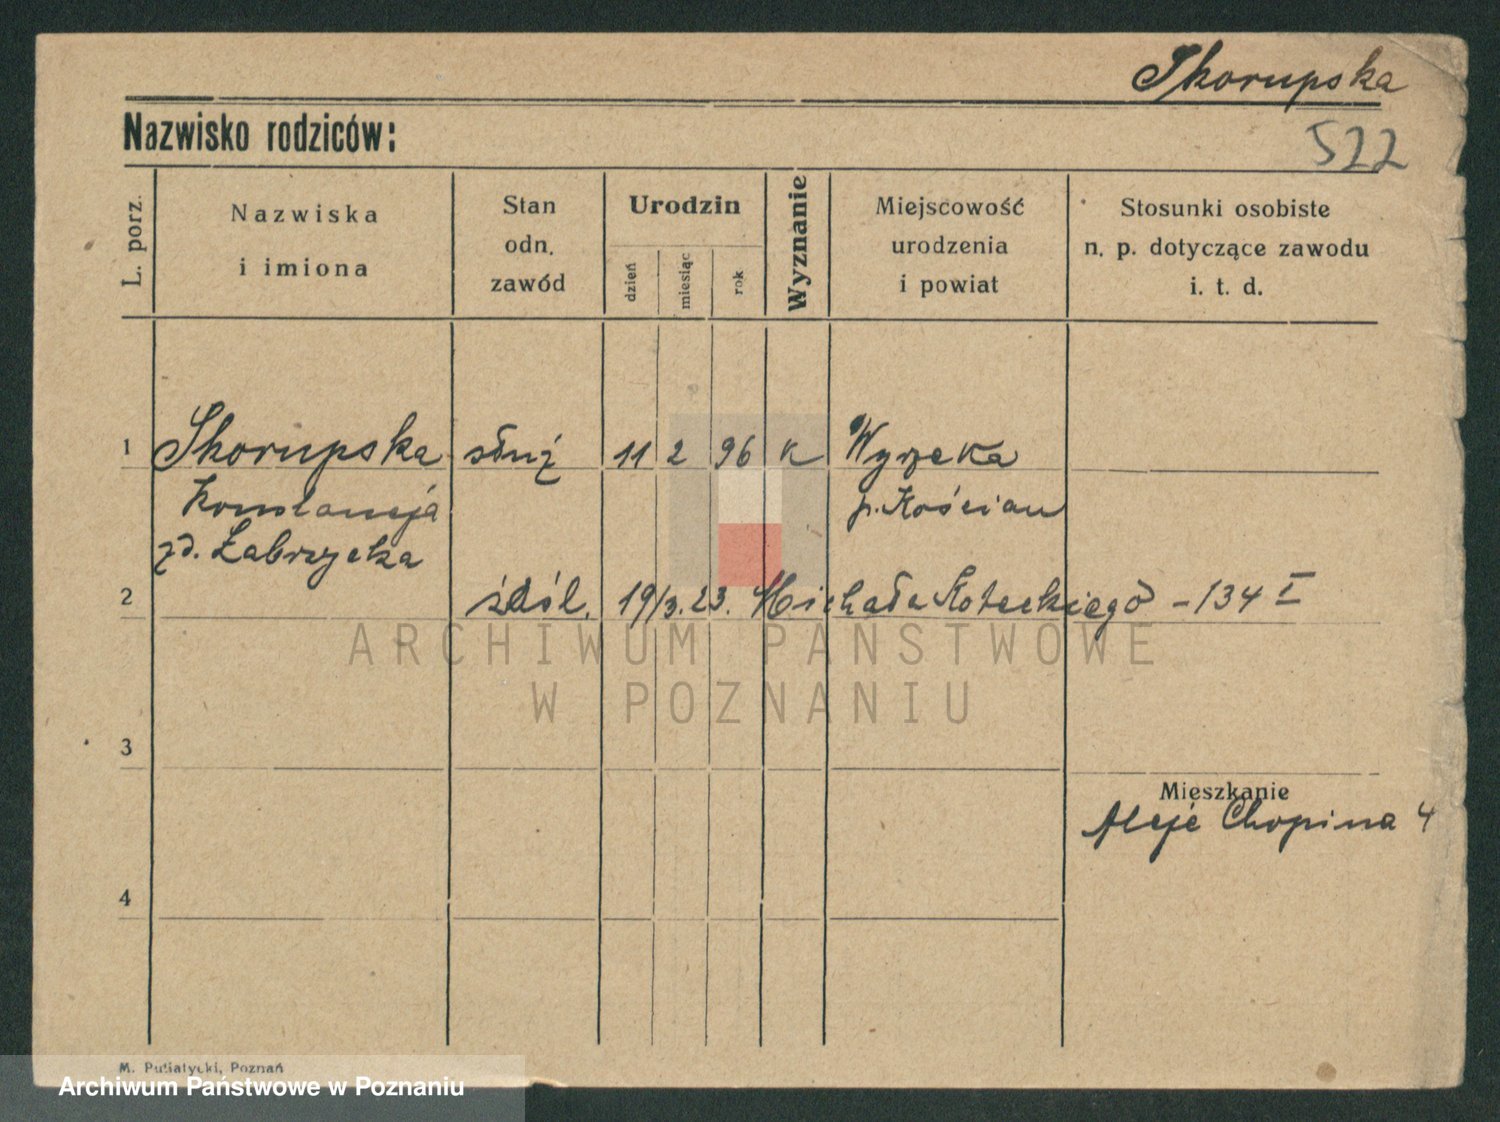 Skorupska
Nazwisko rodziców:
522
L. porz.
Nazwiska
i imiona
Stan
odn.
zawód
Urodzin
dzień
miesiąc
rok
Wyznanie
Miejscowość
urodzenia
i powiat
Stosunki osobiste
n. p. dotyczące zawodu
i. t. d.
1 Skorupska służ 11 2 96 K Wyrzeka
Konstancja p. Kościan
zd. Łabrzycka
2 19/3. 23. Michała Koteckiego - 134 I
ARCHIWUM PAŃSTWOWE
W POZNANIU
3
Mieszkanie
Aleje Chopina 4
4
M. Putiatycki, Poznań
Archiwum Państwowe w Poznaniu